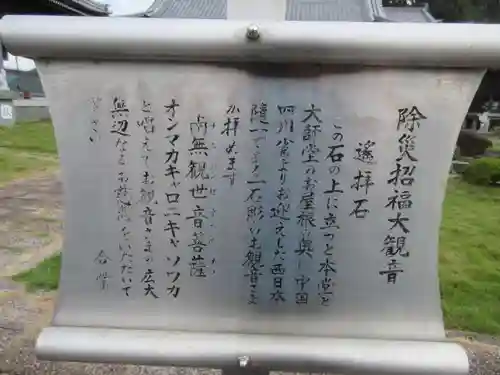 除災招福大観音
遙拝石
この石の上に立つと本堂と
大師堂のお屋根の奥に中国
四川省よりお迎えした西日本
随一である石彫りお観音さま
が拝めます
南無観世音菩薩
オンマカキャロニキャソワカ
と唱えてお観音さまの広大
無辺なるお慈悲をいただいて
下さい
合掌